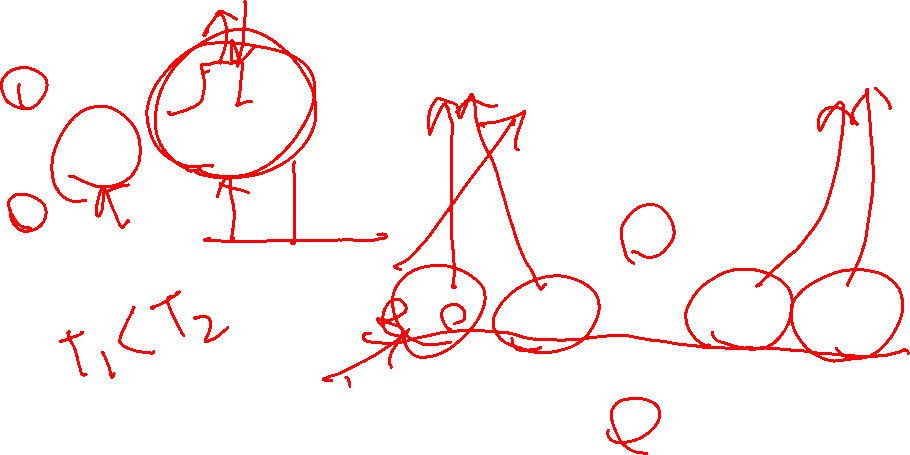 T₁ < T₂